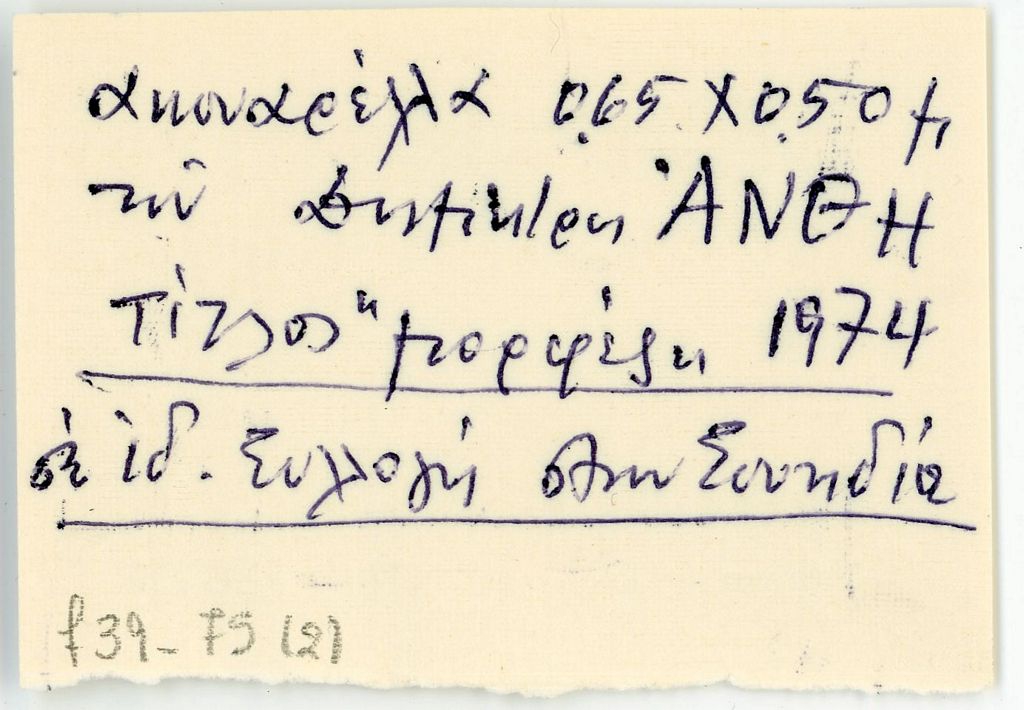 ακουαρέλλα 0.65 Χ 0.50 μ,
τοῦ Δημήτρη ἌΝΘΗ
Τίτλος " μορφές " 1974
σὲ ἰδ. Συλλογή στην Σουηδία
f39 - 75 (2)